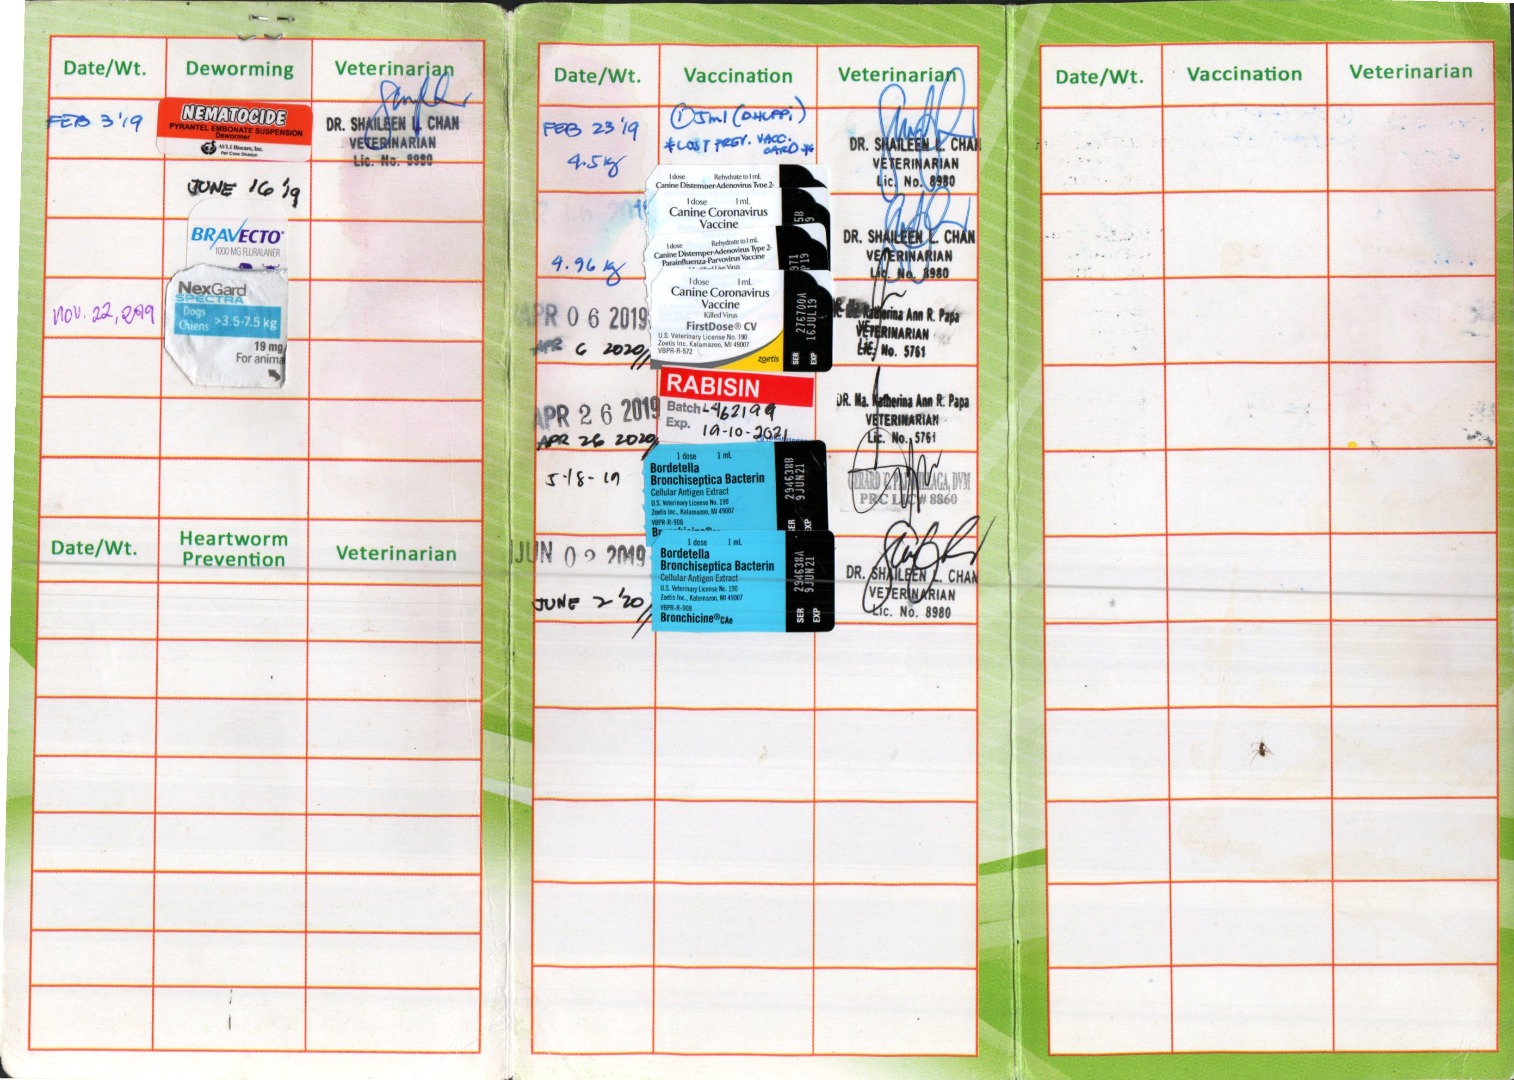 Date/Wt. Deworming Veterinarian
FEB 3 '19
NEMATOCIDE
PYRANTEL EMBONATE SUSPENSION
Dewormer
AVLI Biocare, Inc.
Pet Care Division
DR. SHAILEEN L. CHAN
VETERINARIAN
Lic. No. 8980
JUNE 16 '19
BRAVECTO
1000 MG FLURALANER
NOV. 22, 2019
NexGard
SPECTRA
Dogs
Chiens >3.5-7.5 kg
19 mg
For anima
Date/Wt. Heartworm Prevention Veterinarian
Date/Wt. Vaccination Veterinarian
FEB 23 '19
4.5 kg
① 5ml (DHLPPi)
*LOST PREV. VACC.
CARD *
DR. SHAILEEN L. CHAN
VETERINARIAN
Lic. No. 8980
1 dose Rehydrate to 1 mL
Canine Distemper-Adenovirus Type 2-
1 dose 1 mL
Canine Coronavirus
Vaccine
4.96 kg
DR. SHAILEEN L. CHAN
VETERINARIAN
Lic. No. 8980
1 dose Rehydrate to 1 mL
Canine Distemper-Adenovirus Type 2-
Parainfluenza-Parvovirus Vaccine
APR 06 2019
APR 6 2020
1 dose 1 mL
Canine Coronavirus
Vaccine
Killed Virus
FirstDose® CV
U.S. Veterinary License No. 190
Zoetis Inc. Kalamazoo, MI 49007
VBPR-R-572
zoetis
SER 276700A
EXP 16JUL19
Katherina Ann R. Papa
VETERINARIAN
Lic. No. 5761
APR 26 2019
APR 26 2020
RABISIN
Batch L462199
Exp. 19-10-2021
DR. Ma. Katherina Ann R. Papa
VETERINARIAN
Lic. No. 5761
5-18-19
1 dose 1 mL
Bordetella
Bronchiseptica Bacterin
Cellular Antigen Extract
U.S. Veterinary License No. 190
Zoetis Inc., Kalamazoo, MI 49007
VBPR-R-908
294638B
9JUN21
DVM
PRC LIC# 8860
JUN 02 2019
JUNE 2 '20
1 dose 1 mL
Bordetella
Bronchiseptica Bacterin
Cellular Antigen Extract
U.S. Veterinary License No. 190
Zoetis Inc., Kalamazoo, MI 49007
VBPR-R-908
Bronchicine®CAe
SER 294638A
EXP 9JUN21
DR. SHAILEEN L. CHAN
VETERINARIAN
Lic. No. 8980
Date/Wt. Vaccination Veterinarian